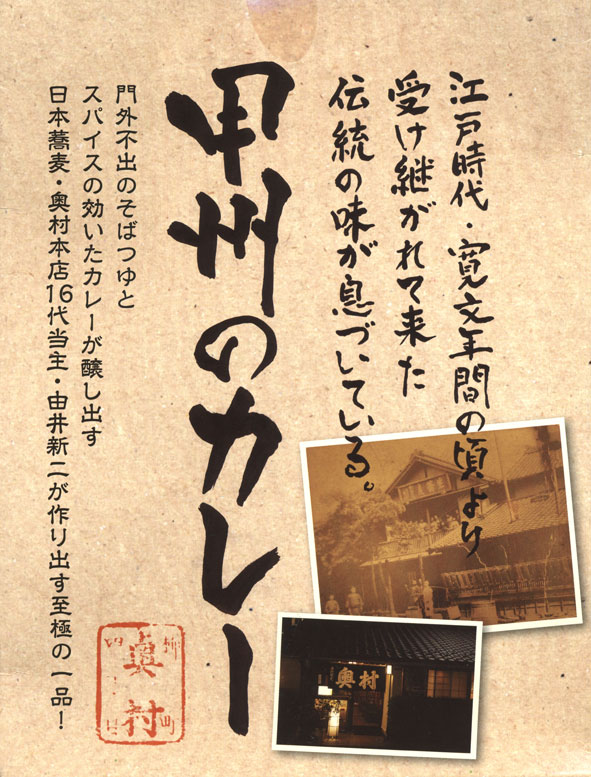 江戸時代・寛文年間の頃より
受け継がれて来た
伝統の味が息づいている。
甲州のカレー
門外不出のそばつゆと
スパイスの効いたカレーが醸し出す
日本蕎麦・奥村本店16代当主・由井新二が作り出す至極の一品!
奥村
奥村